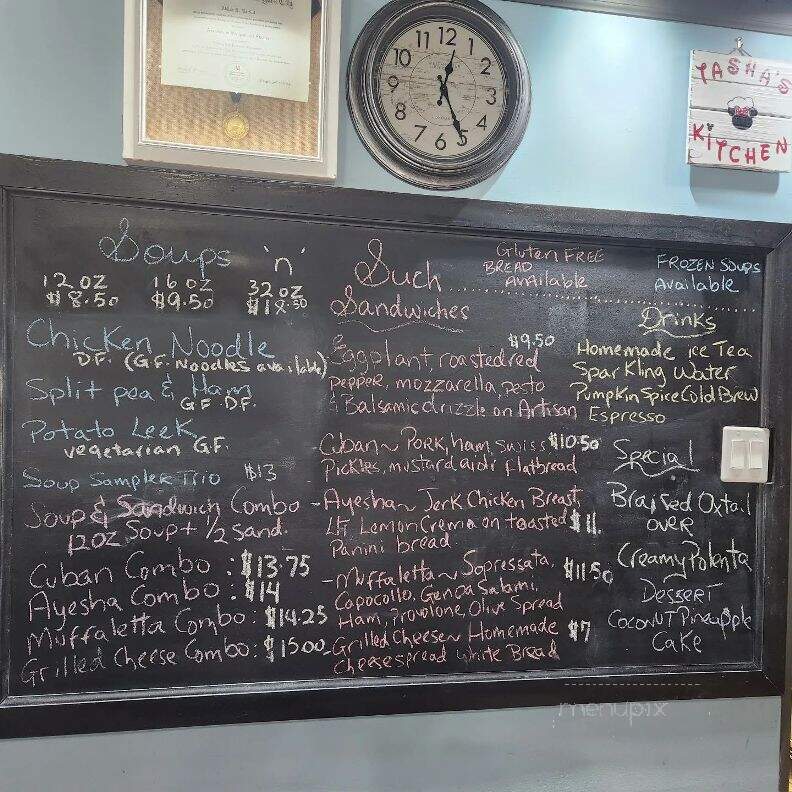 TASHA'S
KITCHEN
11 12 1
10 2
9 3
8 4
7 6 5
Soups 'n'
12 oz 16 oz 32 oz
$8.50 $9.50 $18.50
Chicken Noodle
DF. (G.F. Noodles available)
Split pea & Ham
GF. DF.
Potato Leek
vegetarian G.F.
Soup Sampler Trio $13
Soup & Sandwich Combo
12oz Soup + 1/2 Sand.
Cuban Combo : $13.75
Ayesha Combo : $14
Muffaletta Combo : $14.25
Grilled Cheese Combo: $15.00
Such
Sandwiches
Gluten FREE
BREAD
Available
$9.50
Eggplant, roasted red
pepper, mozzarella, pesto
& Balsamic drizzle on Artisan
Cuban ~ Pork, ham, swiss $10.50
Pickles, mustard aioli flatbread
- Ayesha ~ Jerk Chicken Breast,
Lemon Crema on toasted $11.
Panini bread
- Muffaletta ~ Sopressata, $11.50
Capocollo, Genoa Salami,
Ham, Provolone, Olive Spread
- Grilled Cheese ~ Homemade $7
Cheese spread White Bread
FROZEN SOUPS
Available
Drinks
Homemade ice Tea
Sparkling Water
Pumpkin Spice Cold Brew
Espresso
Special
Braised Oxtail
over
Creamy Polenta
Dessert
Coconut Pineapple
Cake
menupix